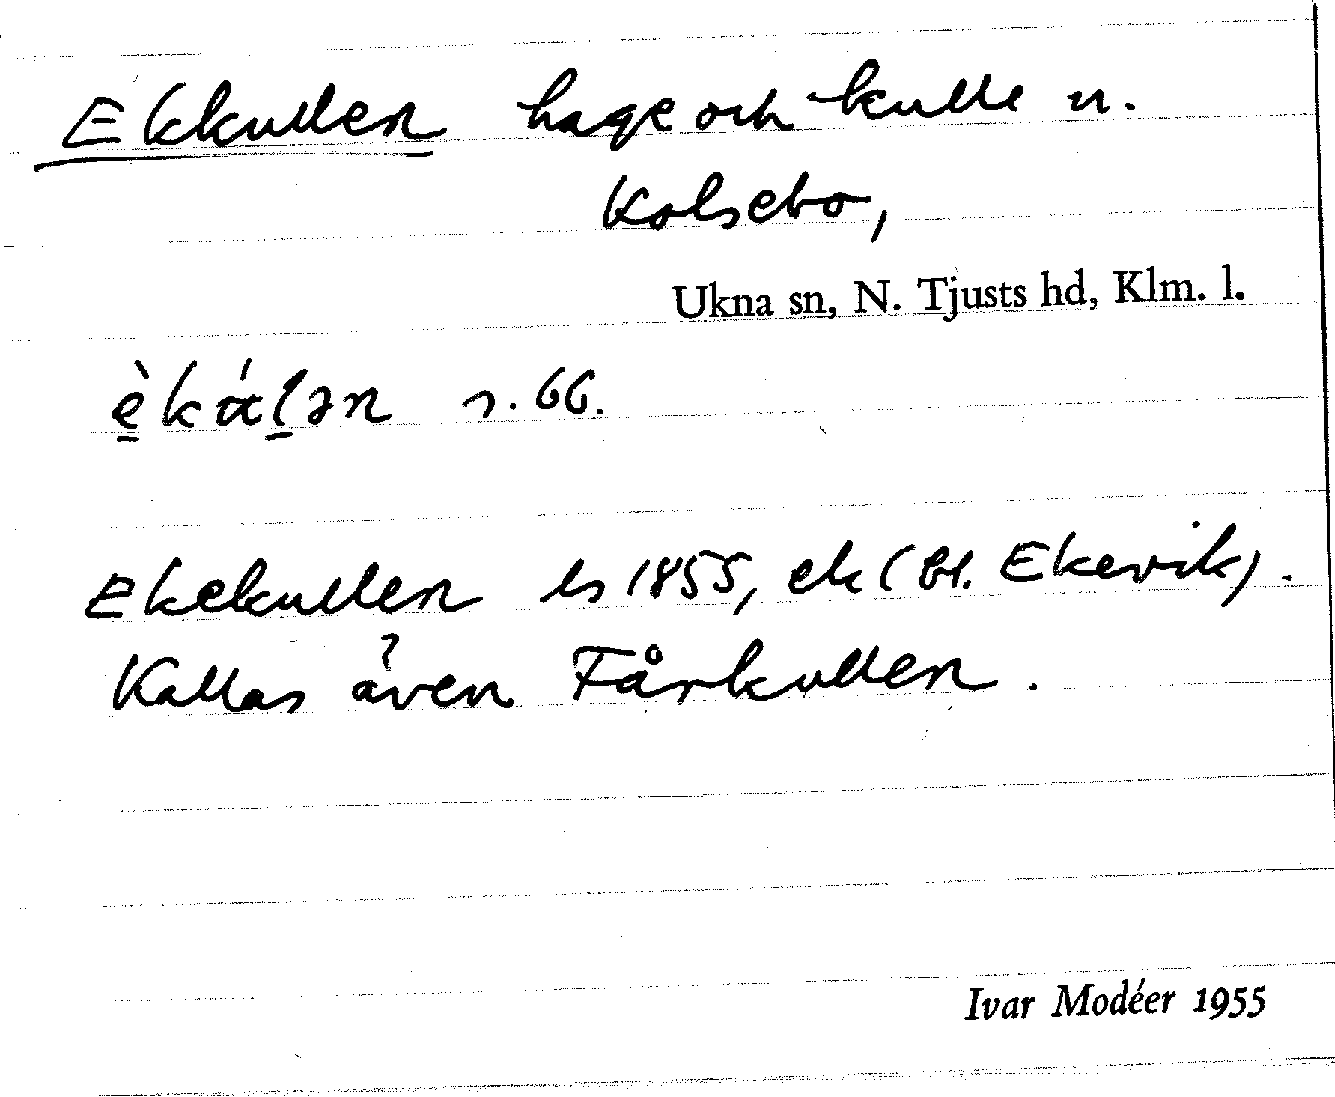 Ekkullen hage och kulle n.
Kolsebo,
Ukna sn, N. Tjusts hd, Klm. l.
66.
Ekekullen ls 1855, ek (bl. Ekevik).
Kallas även Fårkullen.
Ivar Modéer 1955